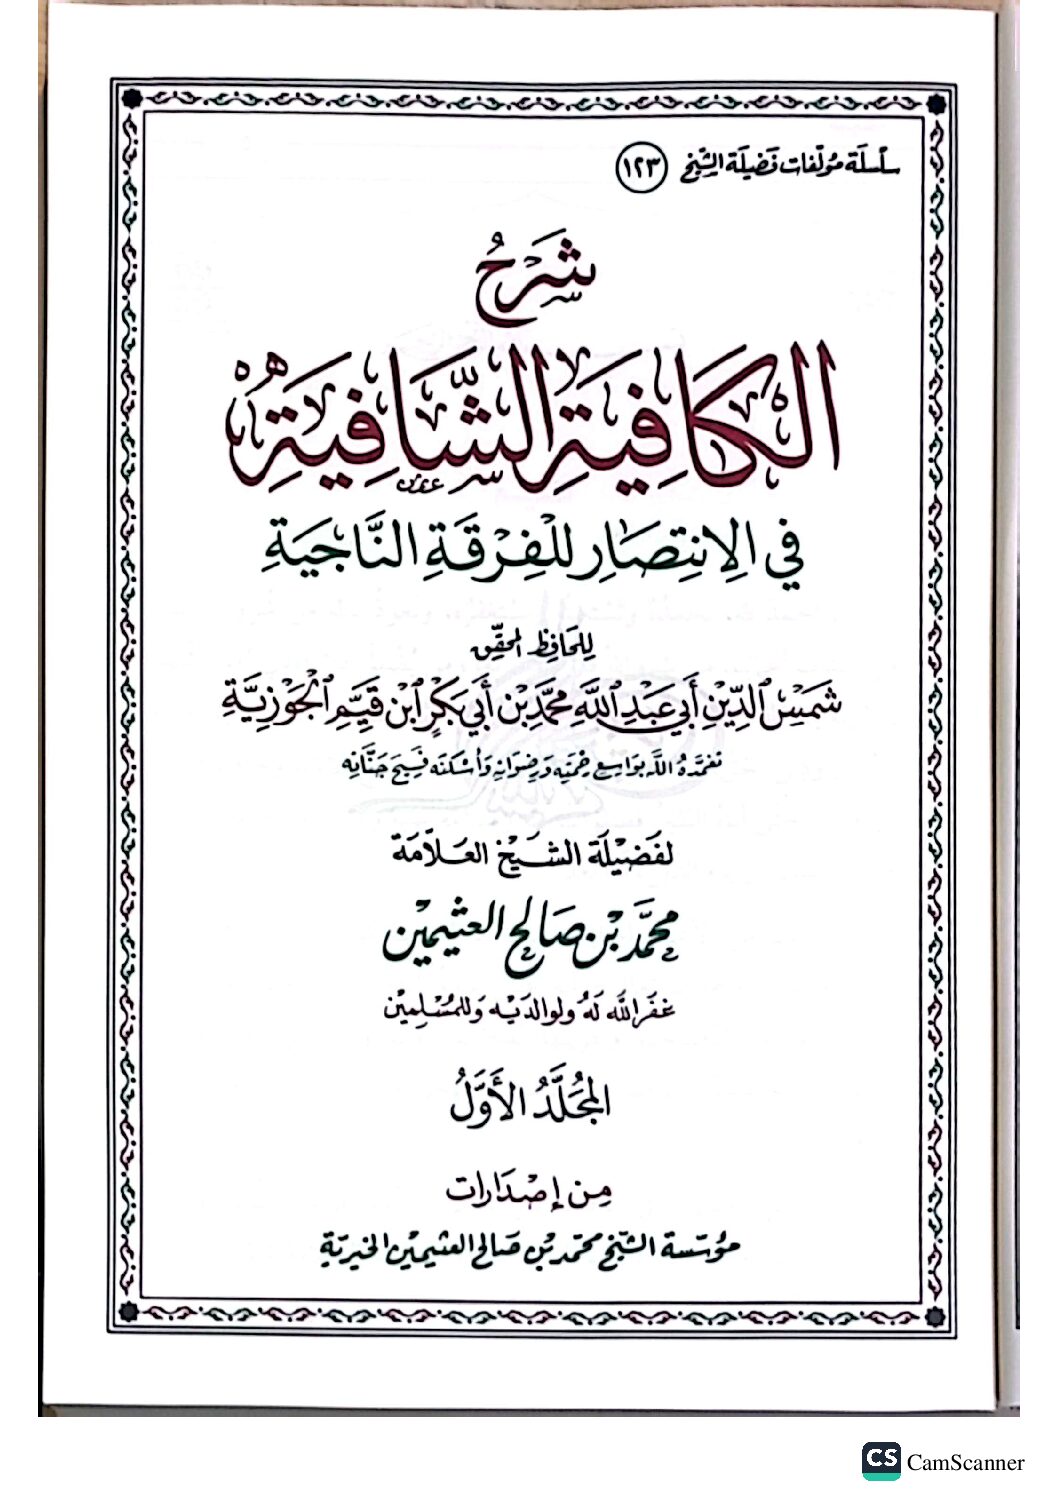 سلسلة مؤلفات فضيلة الشيخ ١٢٣
شَرْحُ
الكَافِيَةِ الشَّافِيَةِ
في الِانْتِصَارِ لِلْفِرْقَةِ النَّاجِيَةِ
لِلحَافِظِ المحَقِّق
شَمْسِ الدِّينِ أَبي عَبْدِ اللَّهِ مُحَمَّد بْنِ أَبي بَكْرٍ ابْنِ قَيِّمِ الْجَوْزِيَّةِ
تغمَّدهُ اللَّه بوَاسِع رَحْمَتِهِ وَرِضوَانِهِ وَأسْكنَه فسِيحَ جَنَّاتِهِ
لفَضِيْلَة الشَّيْخ العَلاَمَة
محمَّد بْن صَالِح العثيمين
غفَرَ اللَّه لَهُ ولوالدَيْه وَللمُسْلِمِيْن
المُجَلَّدُ الأَوَّلُ
مِن إصْدَارات
مؤسّسة الشيخ محمّد بن صَالح العثيمين الخيريّة
CS CamScanner